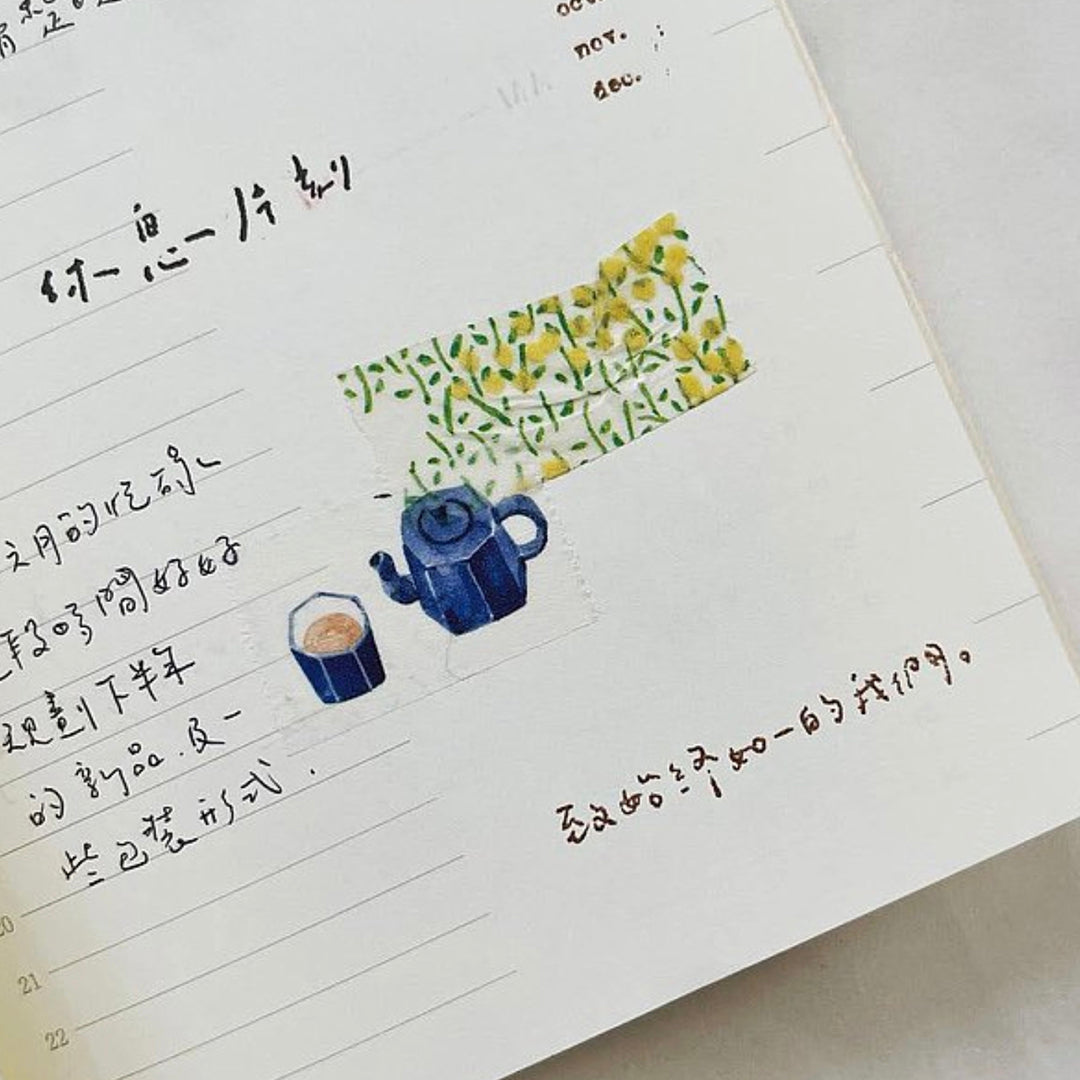 oct.
nov.
dec.
休息一片刻
之月的忙碌、
段時間好好
規劃下半年
的新品.及一
些包裝形式.
致始終如一的我們。
20
21
22